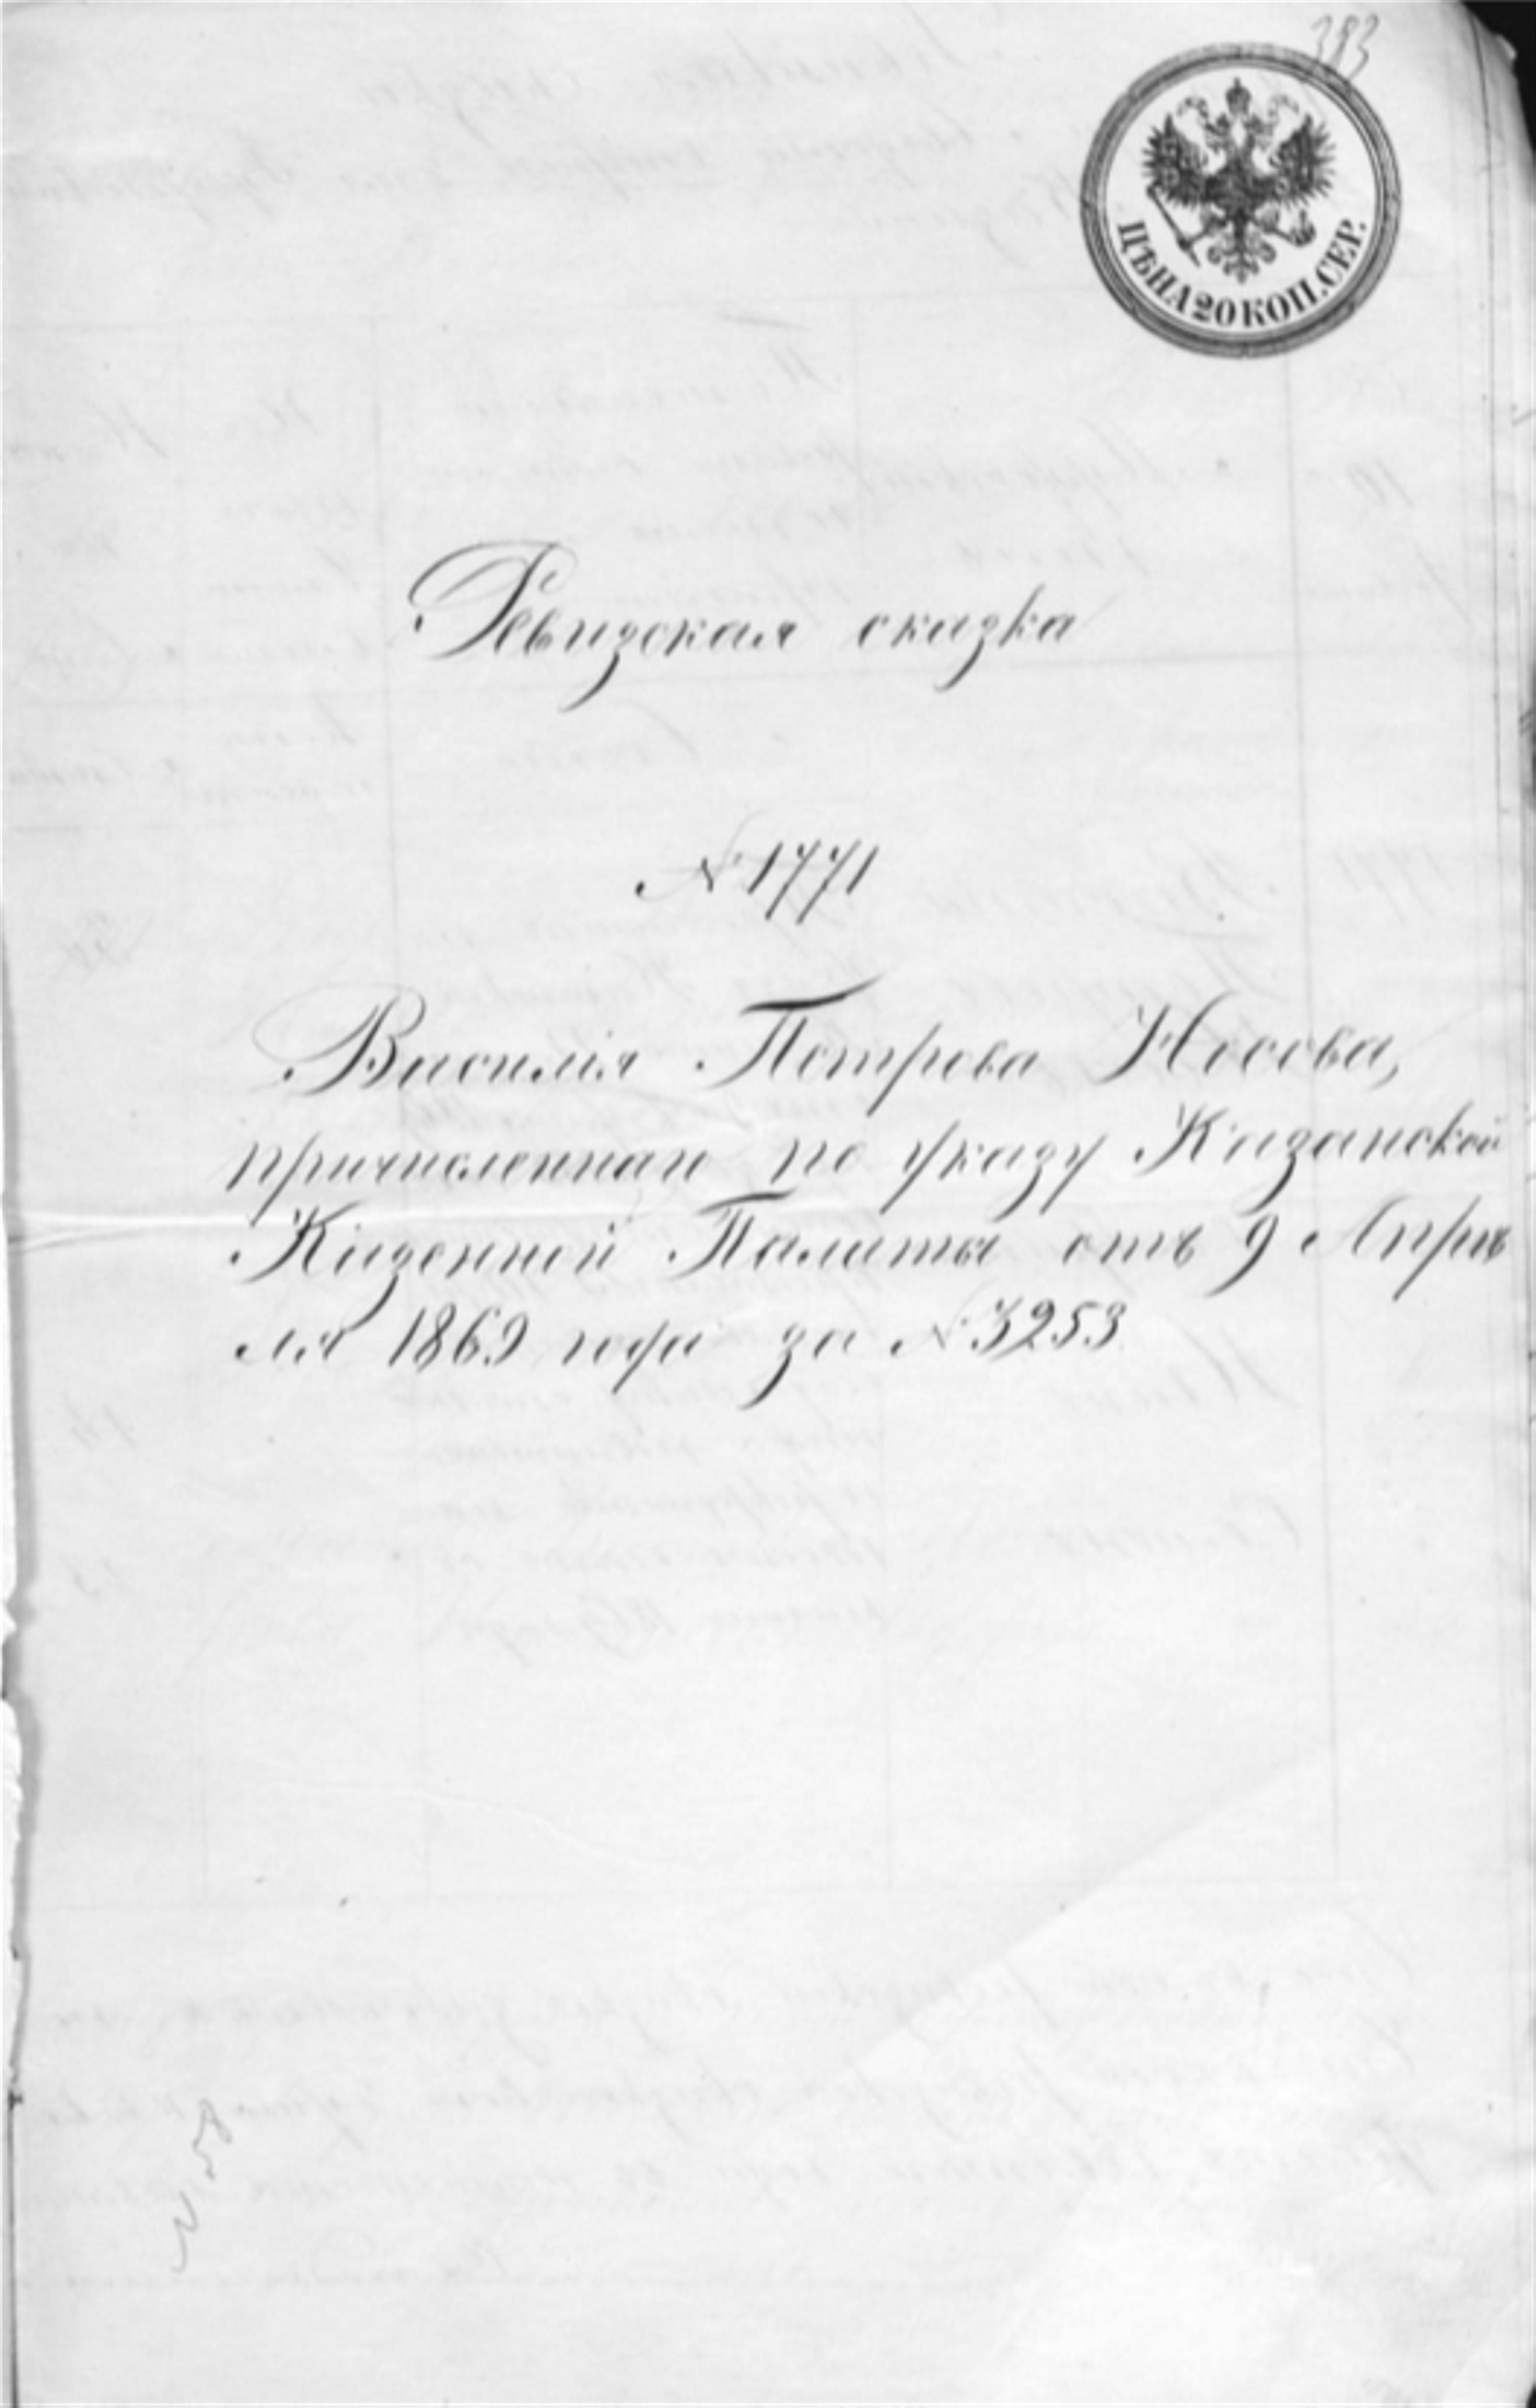 383
ЦѢНА 20 КОП. СЕР.
Ревизская сказка
№ 1771
Василія Петрова Носова,
причисленнаго по указу Казанской
Казенной Палаты отъ 9 Апрѣ
ля 1869 года за № 3253
N 58